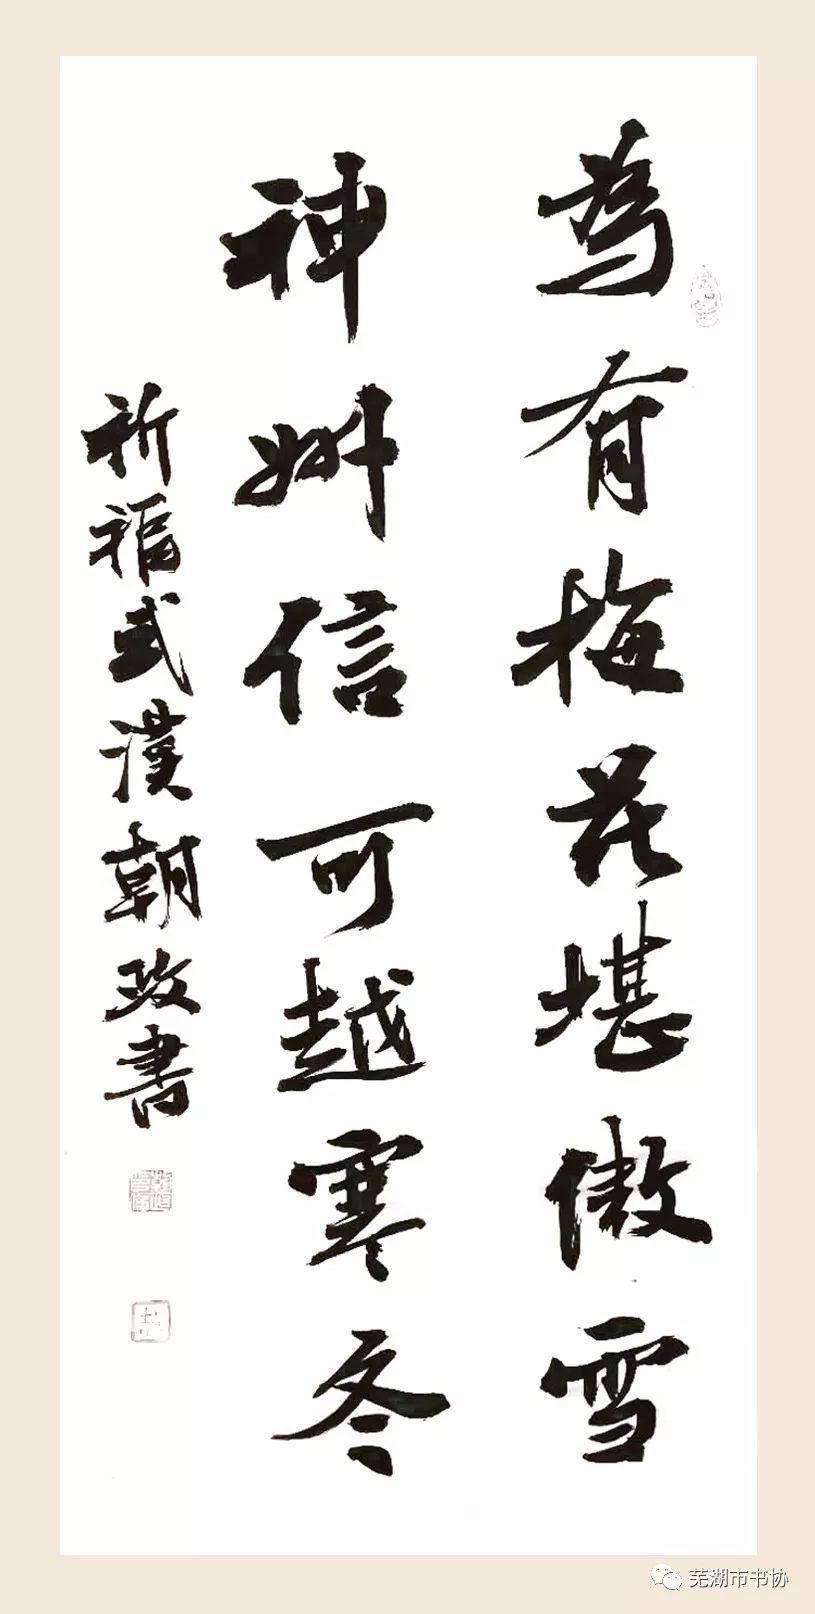 為有梅花堪傲雪
神州信可越寒冬
祈福武漢朝政書
芜湖市书协